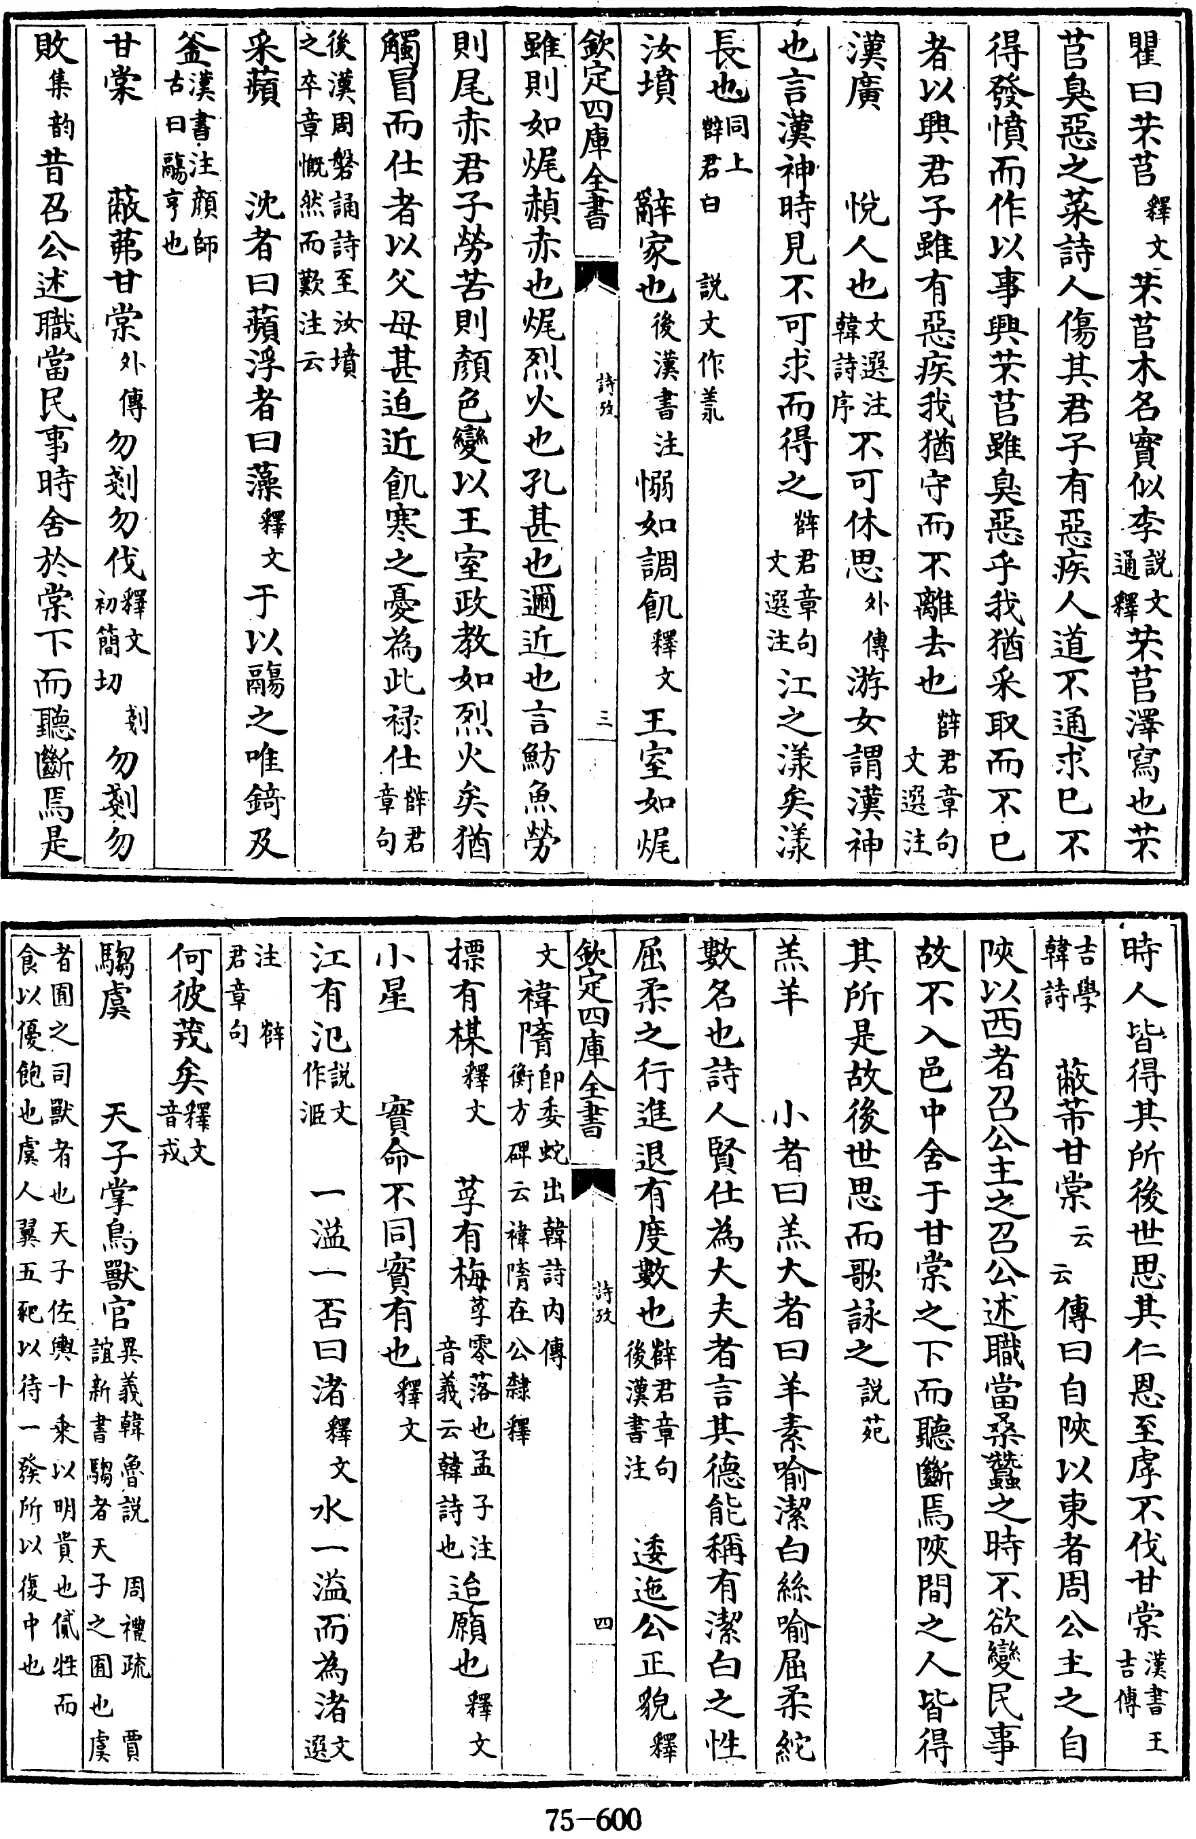 瞿曰芣苢釋文芣苢木名實似李說文通釋芣苢澤寫也芣
苢臭惡之菜詩人傷其君子有惡疾人道不通求已不
得發憤而作以事興芣苢雖臭惡乎我猶采取而不已
者以興君子雖有惡疾我猶守而不離去也薛君章句文選注
漢廣 悅人也文選注韓詩序不可休思外傳游女謂漢神
也言漢神時見不可求而得之薛君章句文選注江之漾矣漾
長也同上薛君曰 說文作羕
汝墳 辭家也後漢書注惄如調飢釋文王室如烓
欽定四庫全書 詩攷 三
雖則如烓赬赤也烓烈火也孔甚也邇近也言魴魚勞
則尾赤君子勞苦則顏色變以王室政教如烈火矣猶
觸冒而仕者以父母甚迫近飢寒之憂為此禄仕薛君章句
後漢周磐誦詩至汝墳之卒章慨然而歎注云
采蘋 沈者曰蘋浮者曰藻釋文于以鬺之唯錡及
釜漢書注顏師古曰鬺亨也
甘棠 蔽茀甘棠外傳勿剗勿伐釋文初簡切 剗勿剗勿
敗集韵昔召公述職當民事時舍於棠下而聽斷焉是
時人皆得其所後世思其仁恩至虖不伐甘棠漢書王吉傳
吉學韓詩 蔽芾甘棠云云傳曰自陝以東者周公主之自
陝以西者召公主之召公述職當桑蠶之時不欲變民事
故不入邑中舍于甘棠之下而聽斷焉陝間之人皆得
其所是故後世思而歌詠之說苑
羔羊 小者曰羔大者曰羊素喻潔白絲喻屈柔紽
數名也詩人賢仕為大夫者言其德能稱有潔白之性
屈柔之行進退有度數也薛君章句後漢書注 逶迤公正貌釋
欽定四庫全書 詩攷 四
文禕隋即委蛇出韓詩內傳衡方碑云禕隋在公隸釋
摽有楳釋文 莩有梅莩零落也孟子注音義云韓詩也迨願也釋文
小星 實命不同實有也釋文
江有汜說文作洍 一溢一否曰渚釋文水一溢而為渚文選
注 薛君章句
何彼茙矣釋文音戎
騶虞 天子掌鳥獸官異義韓魯說 周禮疏 賈誼新書騶者天子之囿也虞
者囿之司獸者也天子佐輿十乘以明貴也貳牲而食以優飽也虞人翼五豝以待一發所以復中也
75-600